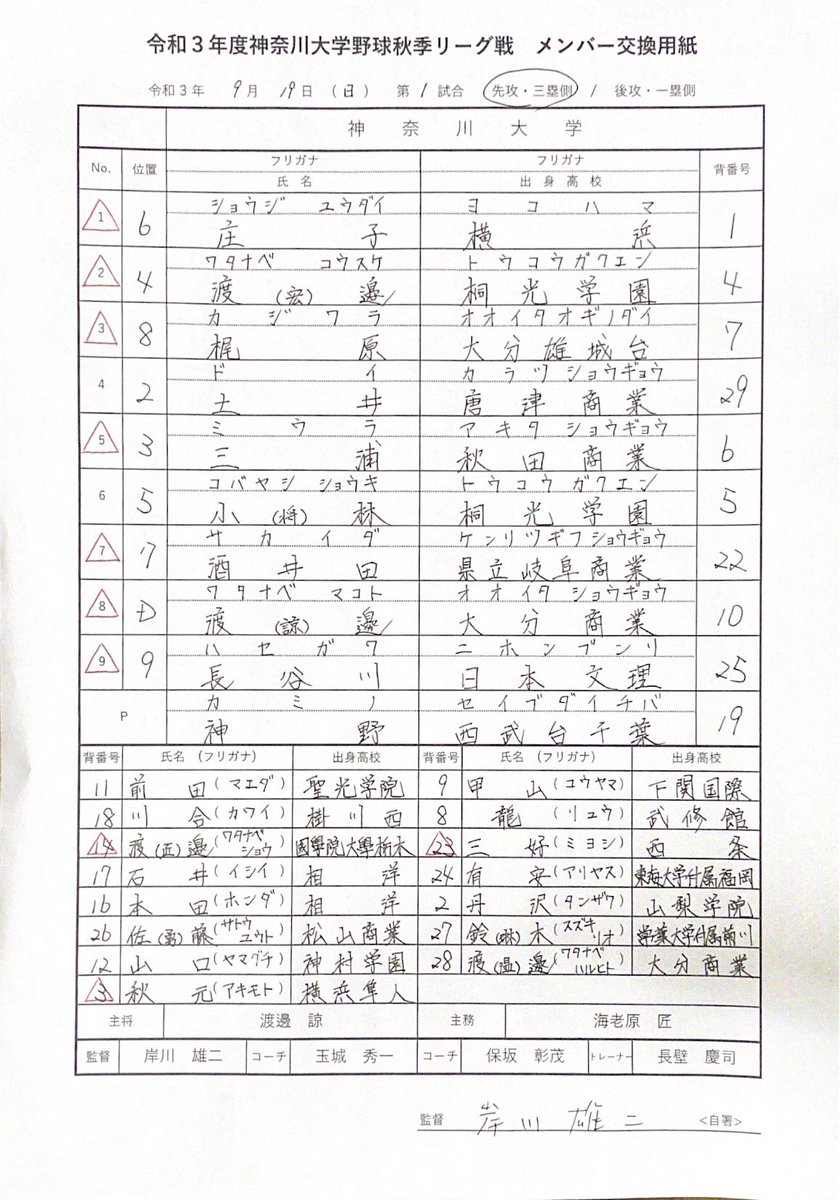 令和３年度神奈川大学野球秋季リーグ戦　メンバー交換用紙
令和３年　9月　19日（日）第 1 試合　先攻・三塁側 / 後攻・一塁側
神奈川大学
No. 位置 フリガナ 氏名 フリガナ 出身高校 背番号
ショウジ ユウダイ ヨコハマ
1 6 庄子 横浜 1
ワタナベ コウスケ トウコウガクエン
2 4 渡(宏)邉 桐光学園 4
カジワラ オオイタオギノダイ
3 8 梶原 大分雄城台 7
ドイ カラツショウギョウ
4 2 土井 唐津商業 29
ミウラ アキタショウギョウ
5 3 三浦 秋田商業 6
コバヤシ ショウキ トウコウガクエン
6 5 小(将)林 桐光学園 5
サカイダ ケンリツギフショウギョウ
7 7 酒井田 県立岐阜商業 22
ワタナベ マコト オオイタショウギョウ
8 D 渡(諒)邉 大分商業 10
ハセガワ ニホンブンリ
9 9 長谷川 日本文理 25
カミノ セイブダイチバ
P 神野 西武台千葉 19
背番号 氏名（フリガナ） 出身高校 背番号 氏名（フリガナ） 出身高校
11 前田(マエダ) 聖光学院 9 甲山(コウヤマ) 下関国際
18 川合(カワイ) 掛川西 8 龍(リュウ) 武修館
14 渡(匠)邉(ワタナベショウ) 國學院大學栃木 23 三好(ミヨシ) 西条
17 石井(イシイ) 相洋 24 有安(アリヤス) 東海大学付属福岡
16 本田(ホンダ) 相洋 2 丹沢(タンザワ) 山梨学院
26 佐(勇)藤(サトウユウト) 松山商業 27 鈴(琳)木(スズキリオ)
12 山口(ヤマグチ) 神村学園 28 渡(温)邉(ワタナベハルヒト) 大分商業
3 秋元(アキモト) 横浜隼人
主将 渡邊 諒 主務 海老原 匠
監督 岸川 雄二 コーチ 玉城 秀一 コーチ 保坂 彰茂 トレーナー 長壁 慶司
監督 岸川雄二 <自署>